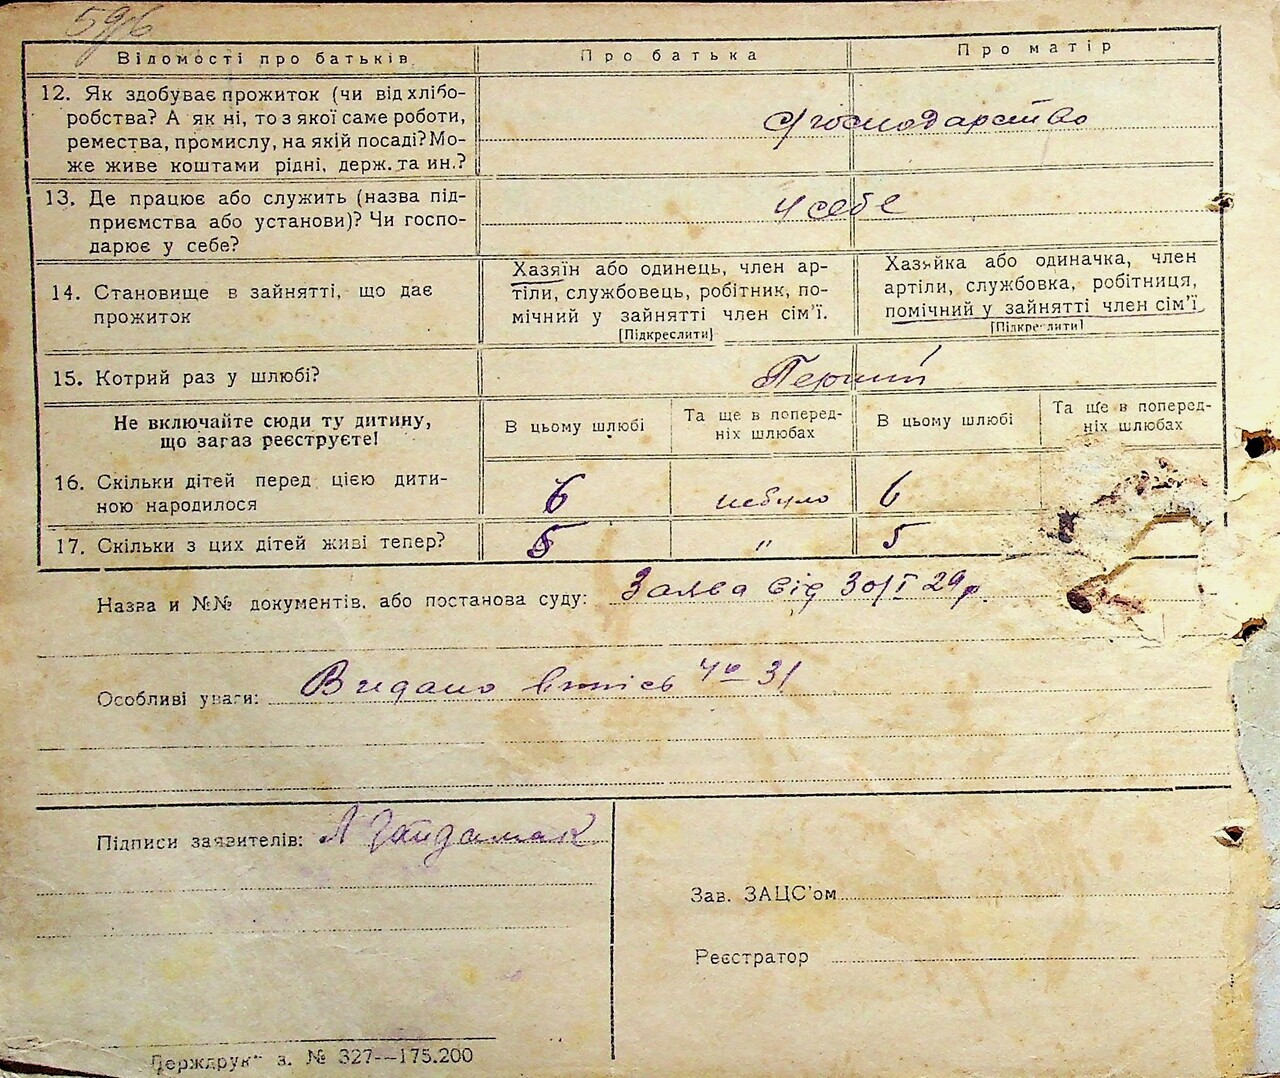 59/6
Відомості про батьків
Про батька
Про матір
12. Як здобуває прожиток (чи від хлібо-
робства? А як ні, то з якої саме роботи,
ремества, промислу, на якій посаді? Мо-
же живе коштами рідні, держ. та ин.?
с/господарство
13. Де працює або служить (назва під-
приємства або установи)? Чи госпо-
дарює у себе?
У себе
14. Становище в зайнятті, що дає
прожиток
Хазяїн або одинець, член ар-
тіли, службовець, робітник, по-
мічний у зайнятті член сім'ї.
[Підкреслити]
Хазяйка або одиначка, член
артіли, службовка, робітниця,
помічний у зайнятті член сім'ї.
[Підкреслити]
15. Котрий раз у шлюбі?
Перший
Не включайте сюди ту дитину,
що загаз реєструєте!
В цьому шлюбі
Та ще в поперед-
ніх шлюбах
В цьому шлюбі
Та ще в поперед-
ніх шлюбах
16. Скільки дітей перед цією дити-
ною народилося
6
небуло
6
17. Скільки з цих дітей живі тепер?
5
"
5
Назва и №№ документів, або постанова суду: Заява від 30/I 29р.
Особливі уваги: Видано витпісь Чо 31
Підписи заявителів: Л Гайдамак
Зав. ЗАЦС'ом
Реєстратор
Держдрук" з. № 327—175.200